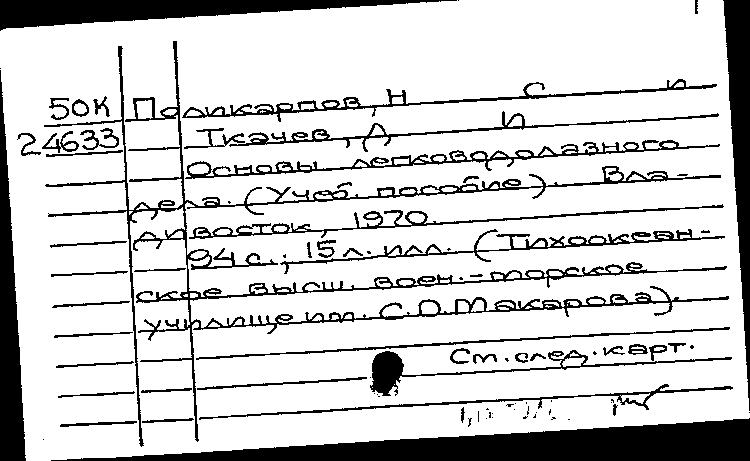 50К Поликарпов, Н С и
24633 Ткачев, Д И
Основы легководолазного
дела. (Учеб. пособие). Вла-
дивосток, 1970.
94 с.; 15 л. илл. (Тихоокеан-
ское высш. воен.-морское
училище им. С.О. Макарова).
См. след. карт.